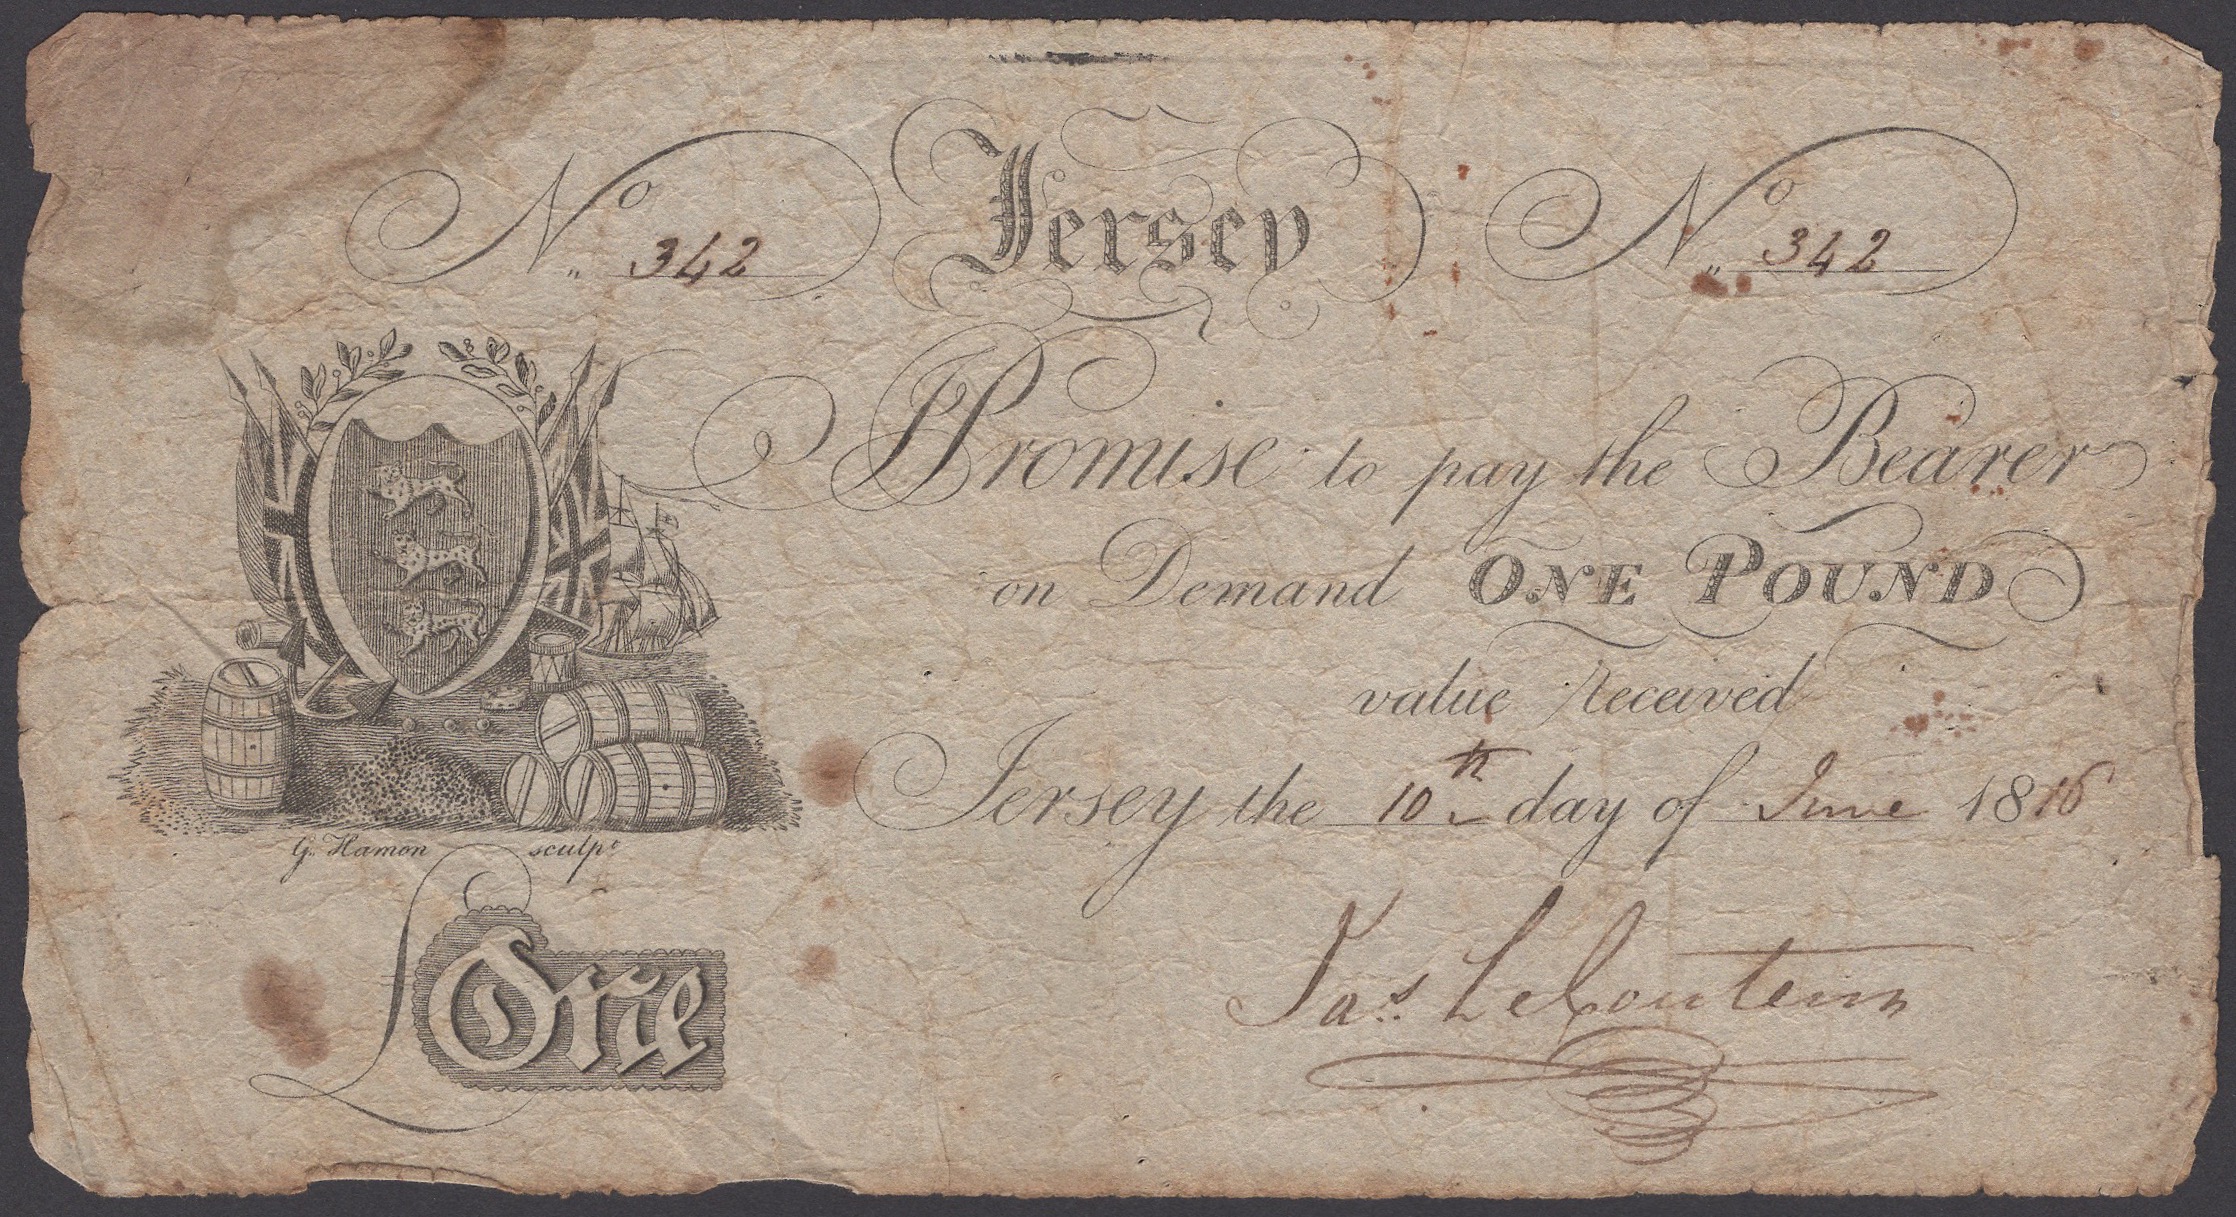 Jersey
No. 342 No. 342
I Promise to pay the Bearer
on Demand ONE POUND
value Received
Jersey the 10th day of June 1816
G. Hamon sculpt
£ One
Jas. LeCouteur